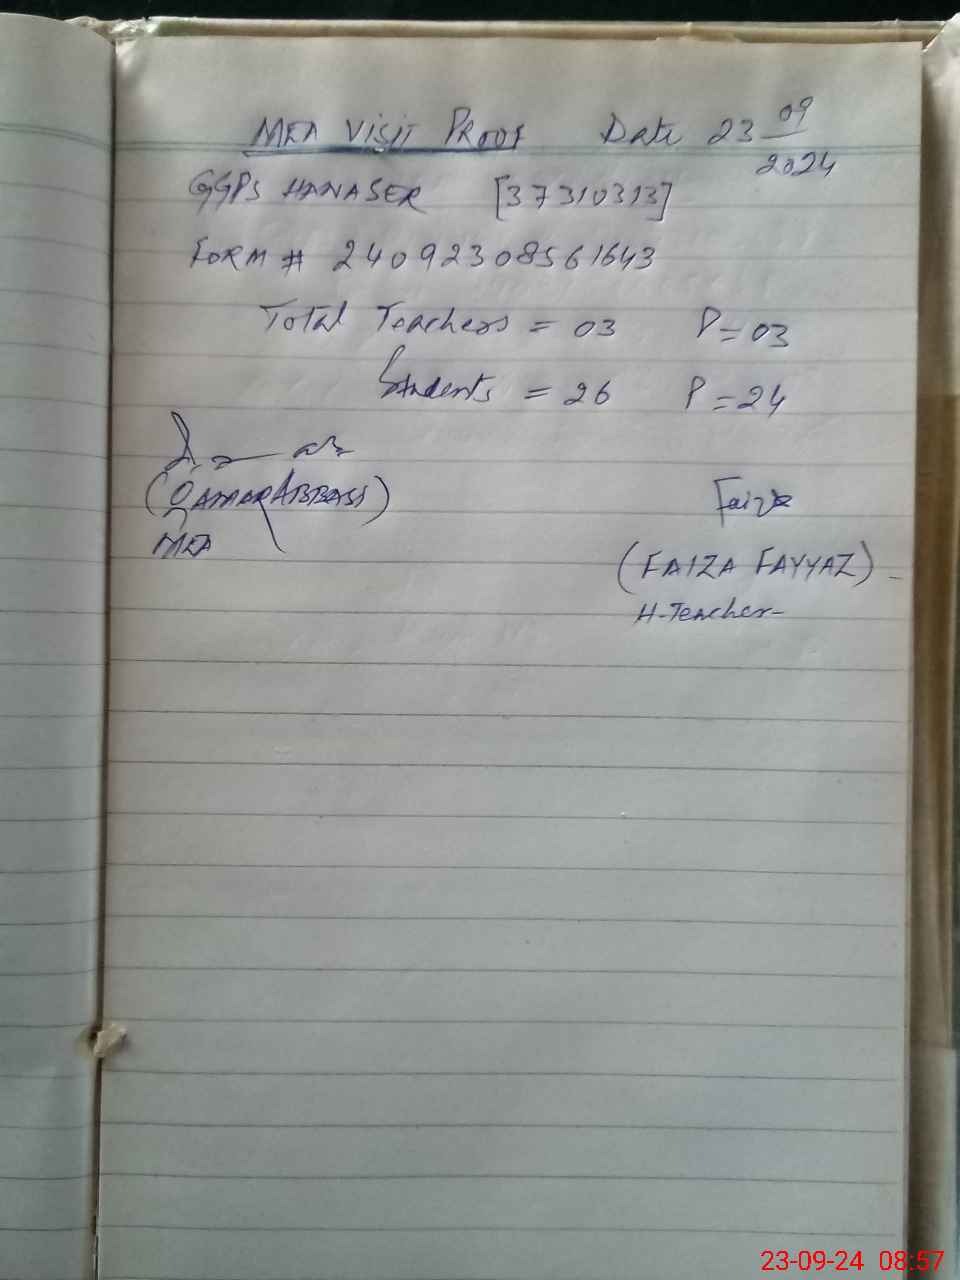 MEA Visit Proof Date 23 09/2024
GGPS HANASER [37310313]
Form # 24092308561643
Total Teachers = 03 P = 03
Students = 26 P = 24
(QAMAR ABBASS)
MEA
Faiza
(FAIZA FAYYAZ)
H-Teacher
23-09-24 08:57